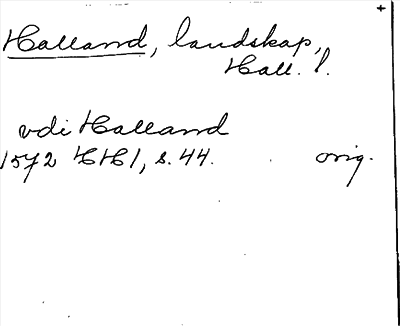 Halland, landskap,
Hall. l.
vdi Halland
1572 HH1, s. 44. orig.